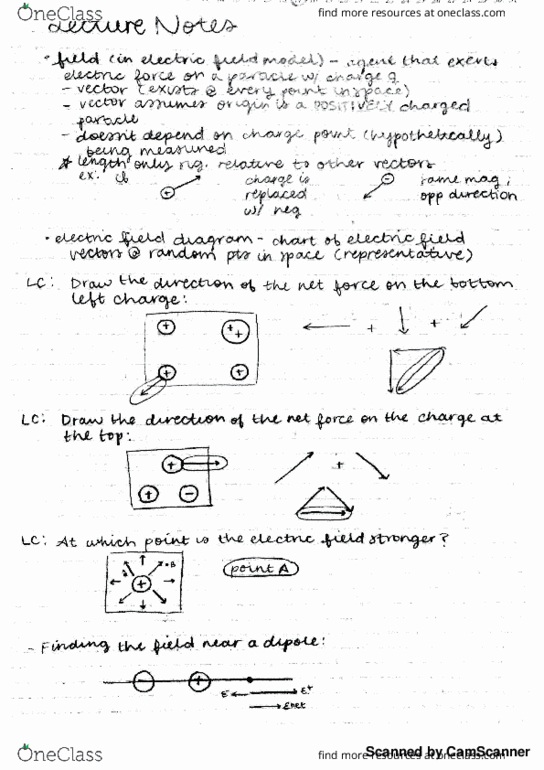 OneClass
find more resources at oneclass.com
Lecture Notes
• field (in electric field model) - agent that exerts
electric force on a particle w/ charge q
- vector (exists @ every point in space)
- vector assumes origin is a POSITIVELY charged
particle
- doesn't depend on charge point (hypothetically)
being measured
* length only sig. relative to other vectors
ex: if
+
charge is
replaced
w/ neg
-
same mag,
opp direction
• electric field diagram - chart of electric field
vectors @ random pts in space (representative)
LC: Draw the direction of the net force on the bottom
left charge:
+ ++
+ +
+ +
LC: Draw the direction of the net force on the charge at
the top:
+
+ -
+
LC: At which point is the electric field stronger?
A
B
+
point A
- Finding the field near a dipole:
- +
E- E+
Enet
OneClass
find more resources at oneclass.com
Scanned by CamScanner